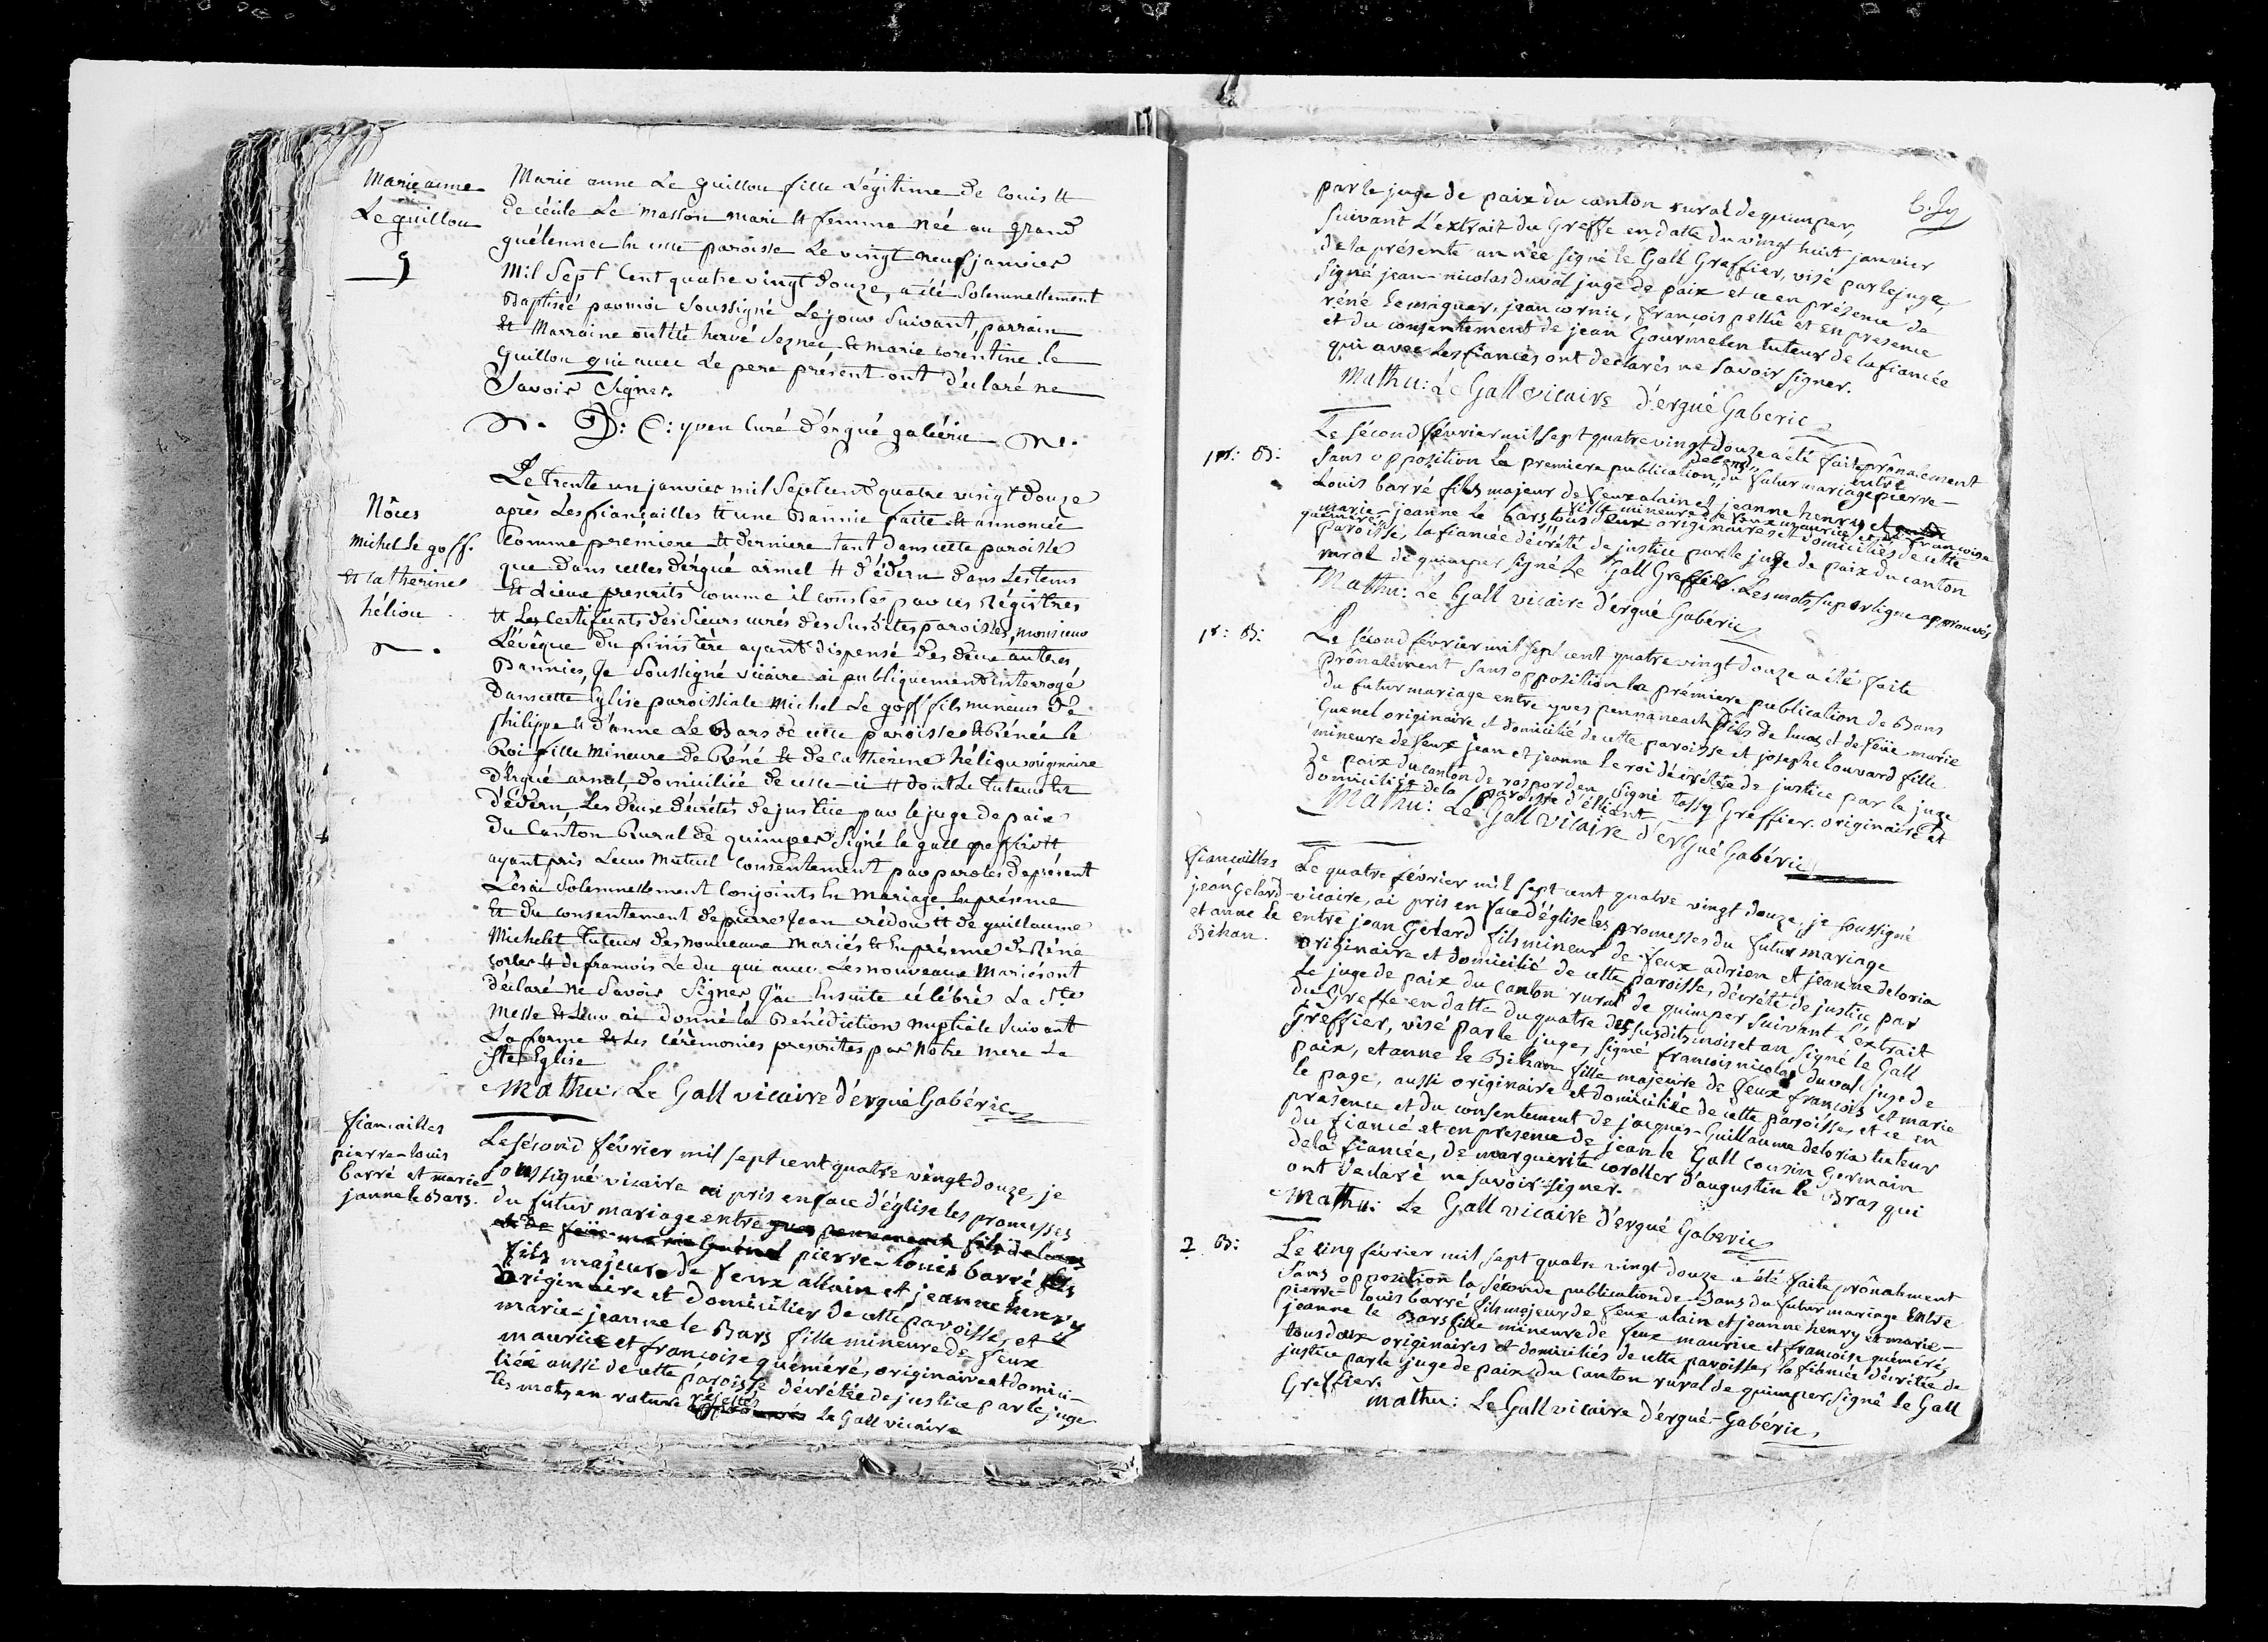 Marie anne
Le guillou
9
Marie anne Le guillou fille Légitime de Louis et
de cécile Le Masson mari et femme née au grand
guélennec en cette paroisse Le vingt neuf janvier
Mil Sept Cent quatre vingt Douze, a été Solemnellement
Baptisée par moi Soussigné Le jour Suivant, parrain
et Marraine ont été hervé Seznec et marie corentine le
Guillou qui avec Le pere présent ont déclaré ne
Savoir Signer.
yven Curé d'érgué gabéric
Nôces
Michel le goff.
et Catherine
héliou
Le trente un janvier mil Sept cent quatre vingt Douze
après Les fiançailles et une Bannie faite et annoncée
Comme premiere et derniere tant dans cette paroisse
que dans celles d'érgué armel et d'édern dans Les tems
et Lieux prescrits comme il conste par ces Régistres
et Les Certificats des Sieurs curés des Susdites paroisses, monsieur
L'évêque du finistère ayant dispensé des deux autres
Bannies, Je Soussigné vicaire ai publiquement interrogé
Dans cette Eglise paroissiale Michel Le goff fils mineur de
philippe et d'anne Le Bars de cette paroisse et Rénée le
Roi fille Mineure de Réné et de Catherine héliou originaire
d'érgué armel, domiciliée de celle-ci et dont Le Tuteur est
d'édern Les deux décrétés de justice par le juge de paix
Du Canton Rural de quimper Signé le gall greffier et
ayant pris Leur Mutuel Consentement par paroles de présent
Les ai Solemnellement Conjoints En Mariage En présence
Et du consentement de pierre Jean crédou et de guillaume
Michelet Tuteur des nouveaux Mariés et En présence de Réné
et de francois Le du qui avec Les nouveaux Mariés ont
déclaré ne Savoir Signer J'ai Ensuite célébré La Ste
Messe et Leur ai donné la Bénédiction nuptiale Suivant
La forme et Les cérémonies prescrites par Notre Mere La
Ste Eglise
Mathu: Le Gall vicaire d'ergué Gabéric
fiancailles
pierre-louis
barré et marie-
janne le Bars.
Le sécond février mil sept cent quatre vingt douze, je
soussigné vicaire ai pris en face d'église les promesses
du futur mariage entre yves pennaneach fils de lucas
et de feüe marie Guenel pierre-louis barré fils
fils majeur de feux allain et jeanne henry
originaire et domicilier de cette paroisse, et
marie-jeanne le Bars fille mineure de feux
maurice et françoise quéméré, originaire et domici-
liée aussi de cette paroisse décrétée de justice par le juge
Les mots en rature rejettés Le Gall vicaire
par le juge de paix du canton rural de quimper,
suivant L'extrait du Greffe en datte du vingt huit janvier
de la présente année signé le Gall Greffier, visé par le juge,
signé jean-nicolas duval juge de paix et ce en présence de
réné le maguer, jean cornic, françois et en presence
et du consentement de jean Gourmelen tuteur de la fiancée
qui avec les fiancés ont declarés ne savoir signer.
Mathu: Le Gall vicaire d'ergué Gaberic
1re: B:
Le sécond février mil sept quatre vingt douze a été faite prônalement
sans opposition la premiere publication de bans du futur mariage entre pierre-
Louis barré fils majeur de feux alain et jeanne henry et
marie-jeanne le bars fille mineure de feux maurice et de françoise
quéméré tous deux originaires et domiciliés de cette
paroisse, la fiancée décrété de justice par le juge de paix du canton
rural de quimper signé Le Gall Greffier. Les mots superligne approuvés
Mathu: Le Gall vicaire d'ergué Gabéric
1r: B:
Le sécond février mil sept cent quatre vingt douze a été faite
prônalement sans opposition la prémiere publication de Bans
du futur mariage entre yves pennaneach fils de lucas et de feüe marie
Guenel originaire et domicilié de cette paroisse et josephe louvard fille
mineure de feux jean et jeanne le roi décrétée de justice par le juge
de paix du canton de rosporden signé tassy Greffier. originaire et
domiciliée de la paroisse d'elliant
Mathu: Le Gall vicaire d'ergué Gabéric
fiancailles
jean Gelard
et anne le
Bihan.
Le quatre février mil sept cent quatre vingt douze, je soussigné
vicaire, ai pris en face d'église les promesses du futur mariage
entre jean Gelard fils mineur de feux adrien et jeanne deloria
originaire et domicilié de cette paroisse, décrété de justice par
le juge de paix du canton rural de quimper suivant l'extrait
du Greffe en datte du quatre des susdits mois et an signé le Gall
Greffier, visé par le juge, signé francois nicolas duval juge de
paix, et anne le Bihan fille majeure de feux françois et marie
le page, aussi originaire et domiciliée de cette paroisse, et ce en
présence et du consentement de jacques-Guillaume deloria tuteur
du fiancé et en presence de jean le Gall cousin Germain
de la fiancée, de marguerite coroller d'augustin le Bras qui
ont declaré ne savoir signer.
Mathu: Le Gall vicaire d'ergué Gaberic
2 B:
Le cinq février mil sept quatre vingt douze a été faite prônalement
sans opposition la séconde publication de Bans du futur mariage entre
pierre-louis barré fils majeur de feux alain et jeanne henry et marie-
jeanne le Bars fille mineure de feux maurice et francoise quéméré,
tous deux originaires et domiciliés de cette paroisse, la fiancée décrétée de
justice par le juge de paix du canton rural de quimper signé le Gall
Greffier.
mathu: Le Gall vicaire d'ergué-Gabéric,